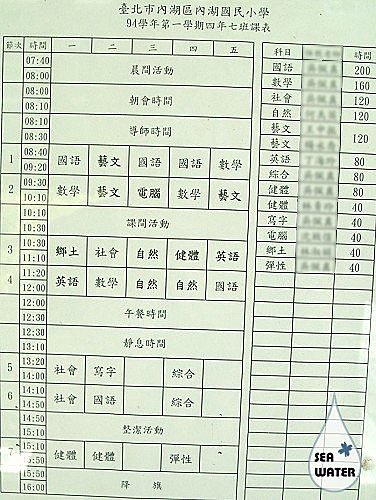 臺北市內湖區內湖國民小學
94學年第一學期四年七班課表
節次 時間 一 二 三 四 五
07:40
08:00 晨間活動
08:00
08:10 朝會時間
08:10
08:30 導師時間
08:30
1 08:40 09:20 國語 藝文 國語 國語 數學
2 09:30 10:10 數學 藝文 電腦 數學 藝文
10:10
10:30 課間活動
3 10:30 11:10 鄉土 社會 自然 健體 英語
4 11:20 12:00 英語 數學 自然 自然 國語
12:00
12:30 午餐時間
12:30
13:10 靜息時間
5 13:20 14:00 社會 寫字 綜合
6 14:10 14:50 社會 國語 綜合
14:50
15:10 整潔活動
7 15:10 15:50 健體 健體 彈性
15:50
16:00 降 旗
科目 時間
國語 200
數學 160
社會 120
自然 120
藝文
藝文 120
英語 80
綜合 80
健體 80
健體 40
寫字 40
電腦 40
鄉土 40
彈性 40
SEA
WATER